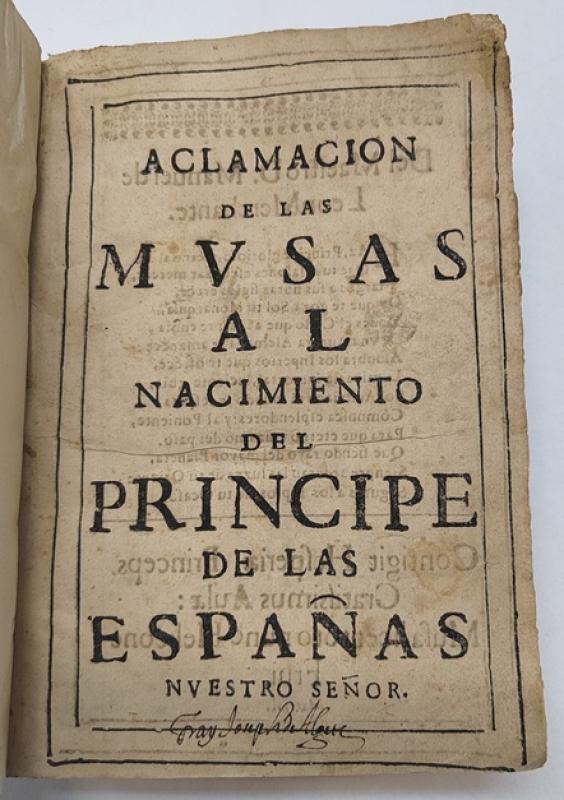 ACLAMACION
DE LAS
MVSAS
AL
NACIMIENTO
DEL
PRINCIPE
DE LAS
ESPAÑAS
NVESTRO SEÑOR.
Fray Joseph de